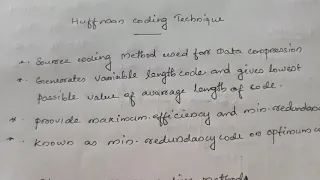 Huffman coding Technique
*. Source coding Method used for Data compression
*. Generates variable length code and gives lowest
possible value of avarage length of code.
*. provide maximum efficiency and min. redundancy
*. known as min. redundancy code or optimum